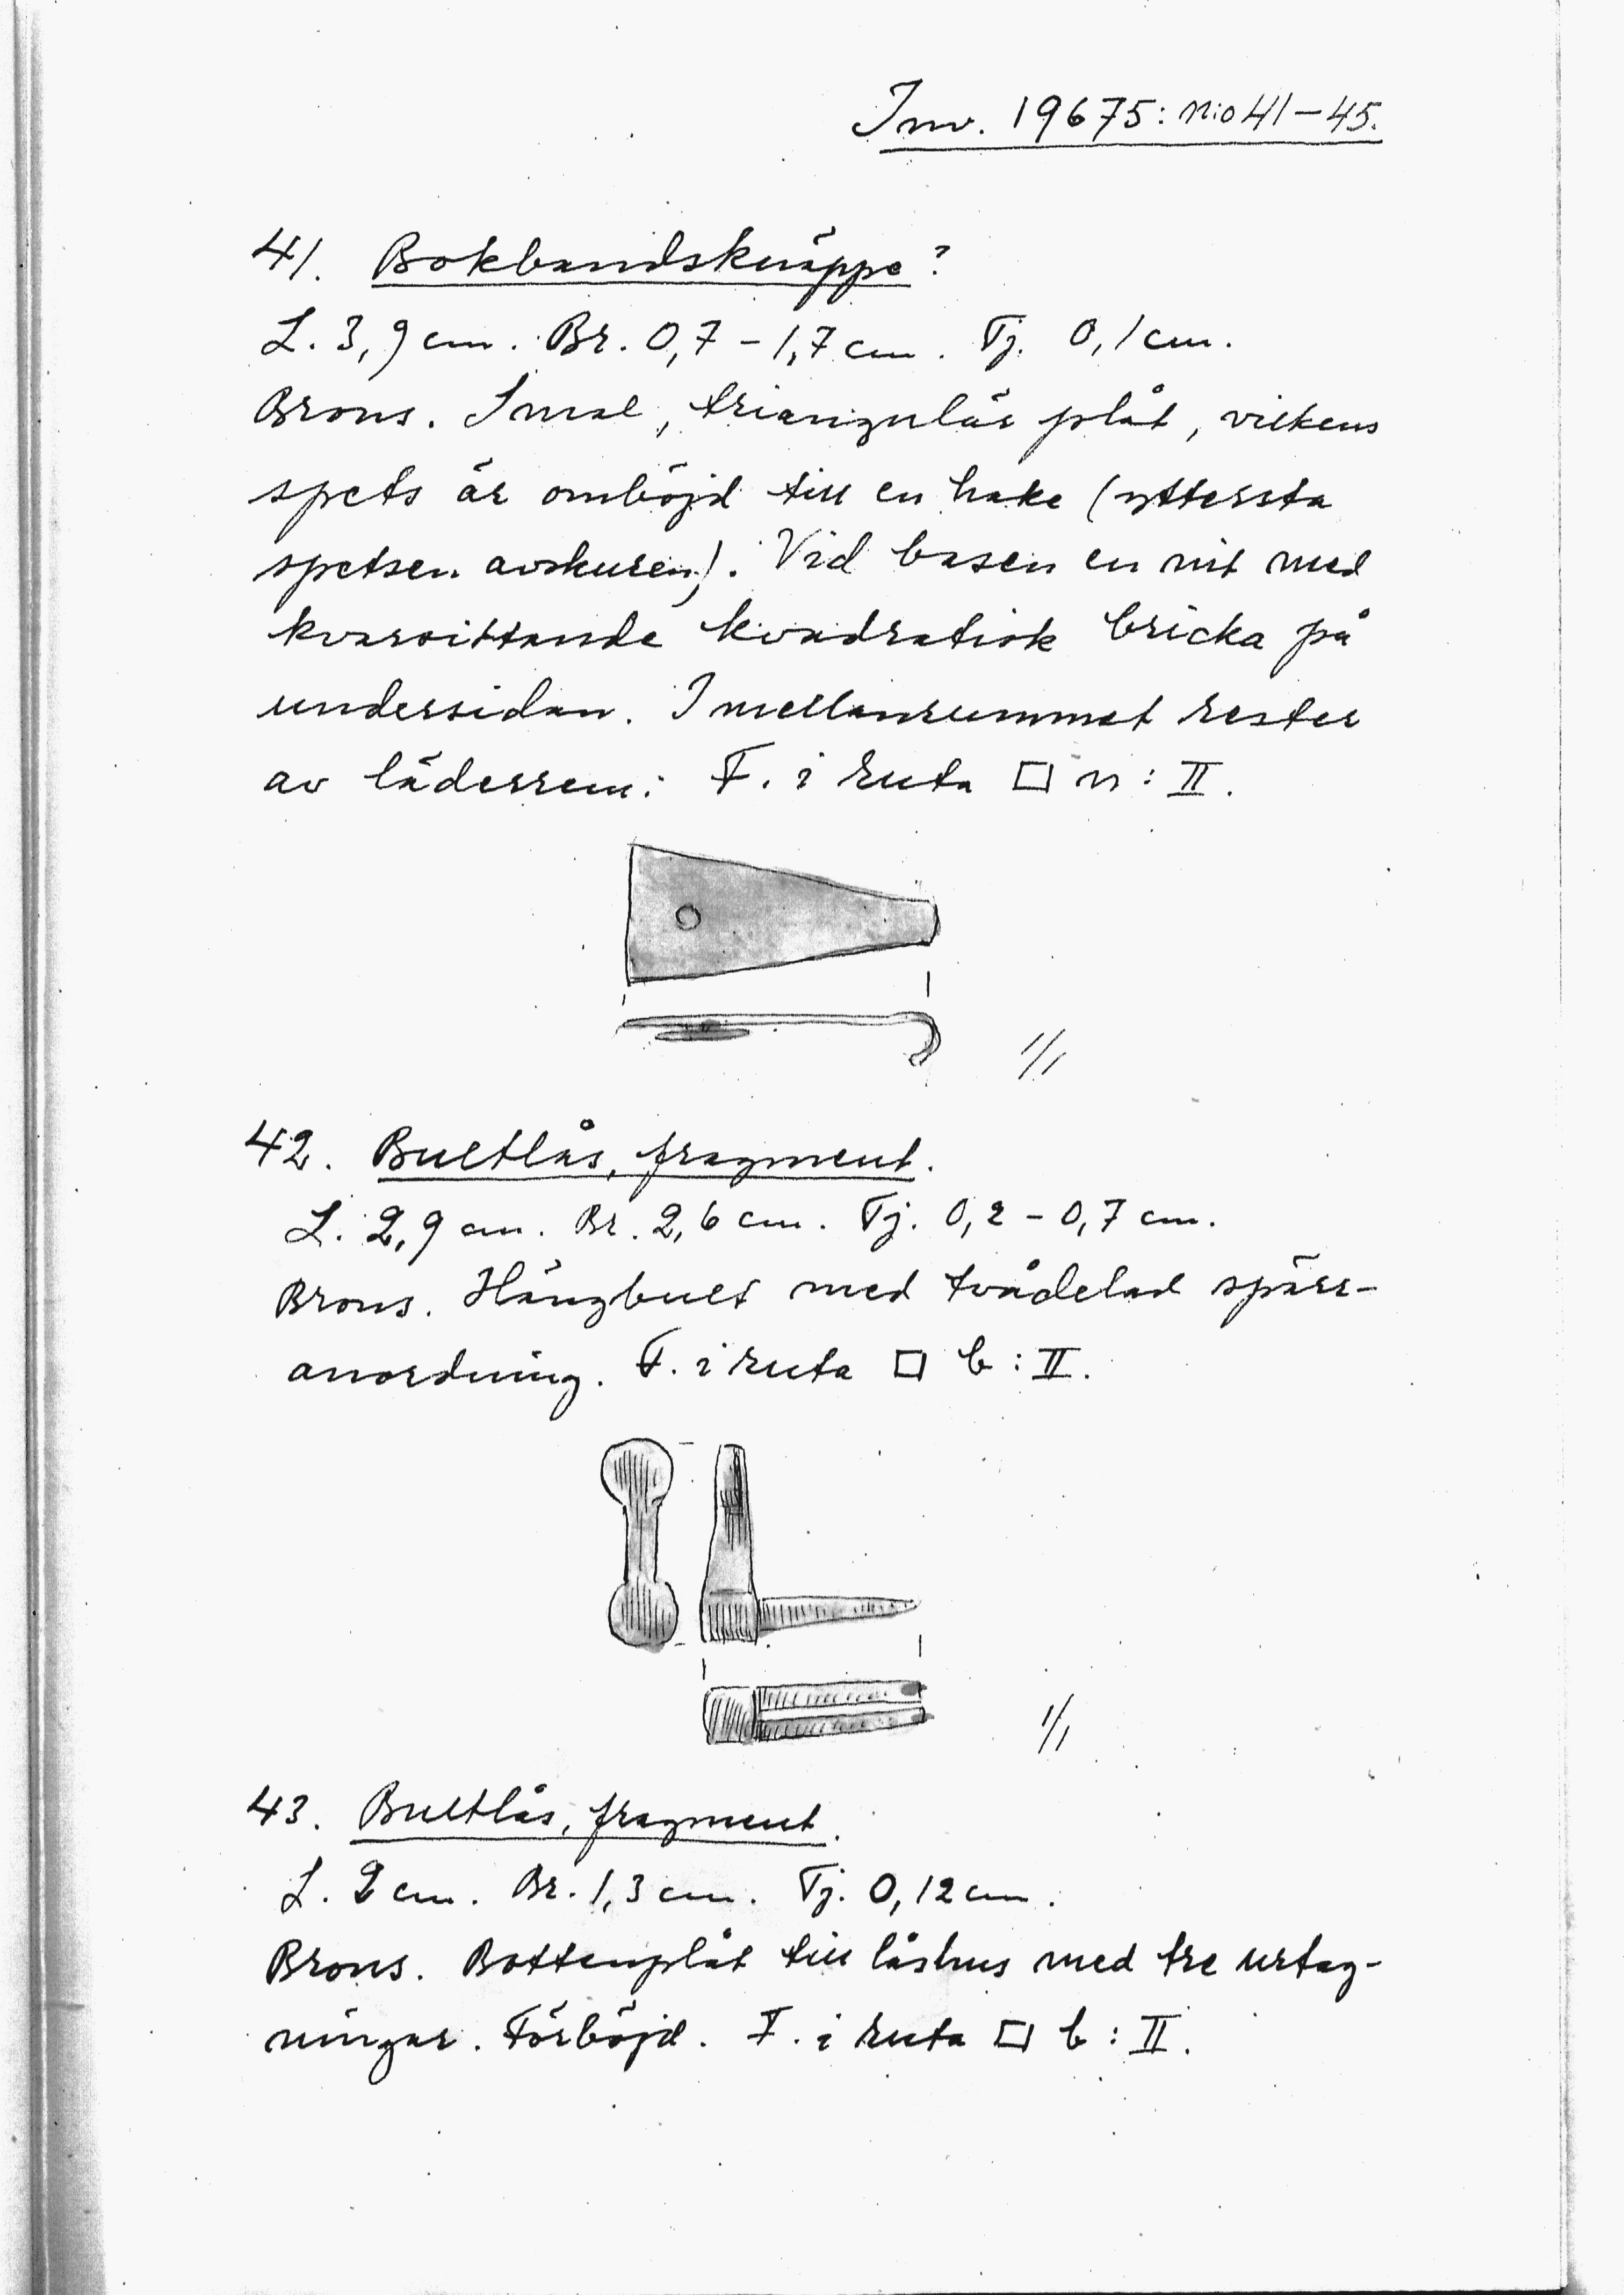 Inv. 19675: n:o 41–45.
41. Bokbandsknäppe?
L. 3,9 cm. Br. 0,7 – 1,7 cm. Tj. 0,1 cm.
Brons. Smal, triangulär plåt, vilkens
spets är omböjd till en hake (yttersta
spetsen avskuren). Vid basen en nit med
kvarsittande kvadratisk bricka på
undersidan. I mellanrummet rester
av läderrem. F. i ruta □ n : II.
1/1
42. Bultlås, fragment.
L. 2,9 cm. Br. 2,6 cm. Tj. 0,2 – 0,7 cm.
Brons. Hängbult med tvådelad spärr-
anordning. F. i ruta □ b : II.
1/1
43. Bultlås, fragment.
L. 2 cm. Br. 1,3 cm. Tj. 0,12 cm.
Brons. Bottenplåt till låshus med tre urtag-
ningar. Förböjd. F. i ruta □ b : II.